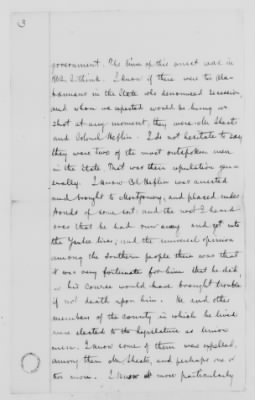 3
government. The time of this arrest was in
1862 I think. I know if there were two Ala-
bamians in the State who denounced secession,
and whom we expected would be hung or
shot at any moment, they were Mr. Sheats
and Colonel Heflin. I do not hesitate to say
they were two of the most outspoken men
in the State. That was their reputation gen-
erally. I know Col. Heflin was arrested
and brought to Montgomery, and placed under
bonds of some sort and the next I heard
was that he had run away and got into
the Yankee lines; and the universal opinion
among the southern people there was that
it was very fortunate for him that he did,
as his course would have brought trouble
if not death upon him. He and other
members of the county in which he lived
were elected to the legislature as Union
men. I know some of them were expelled,
among them Mr. Sheats, and perhaps one or
two more. I know most particularly